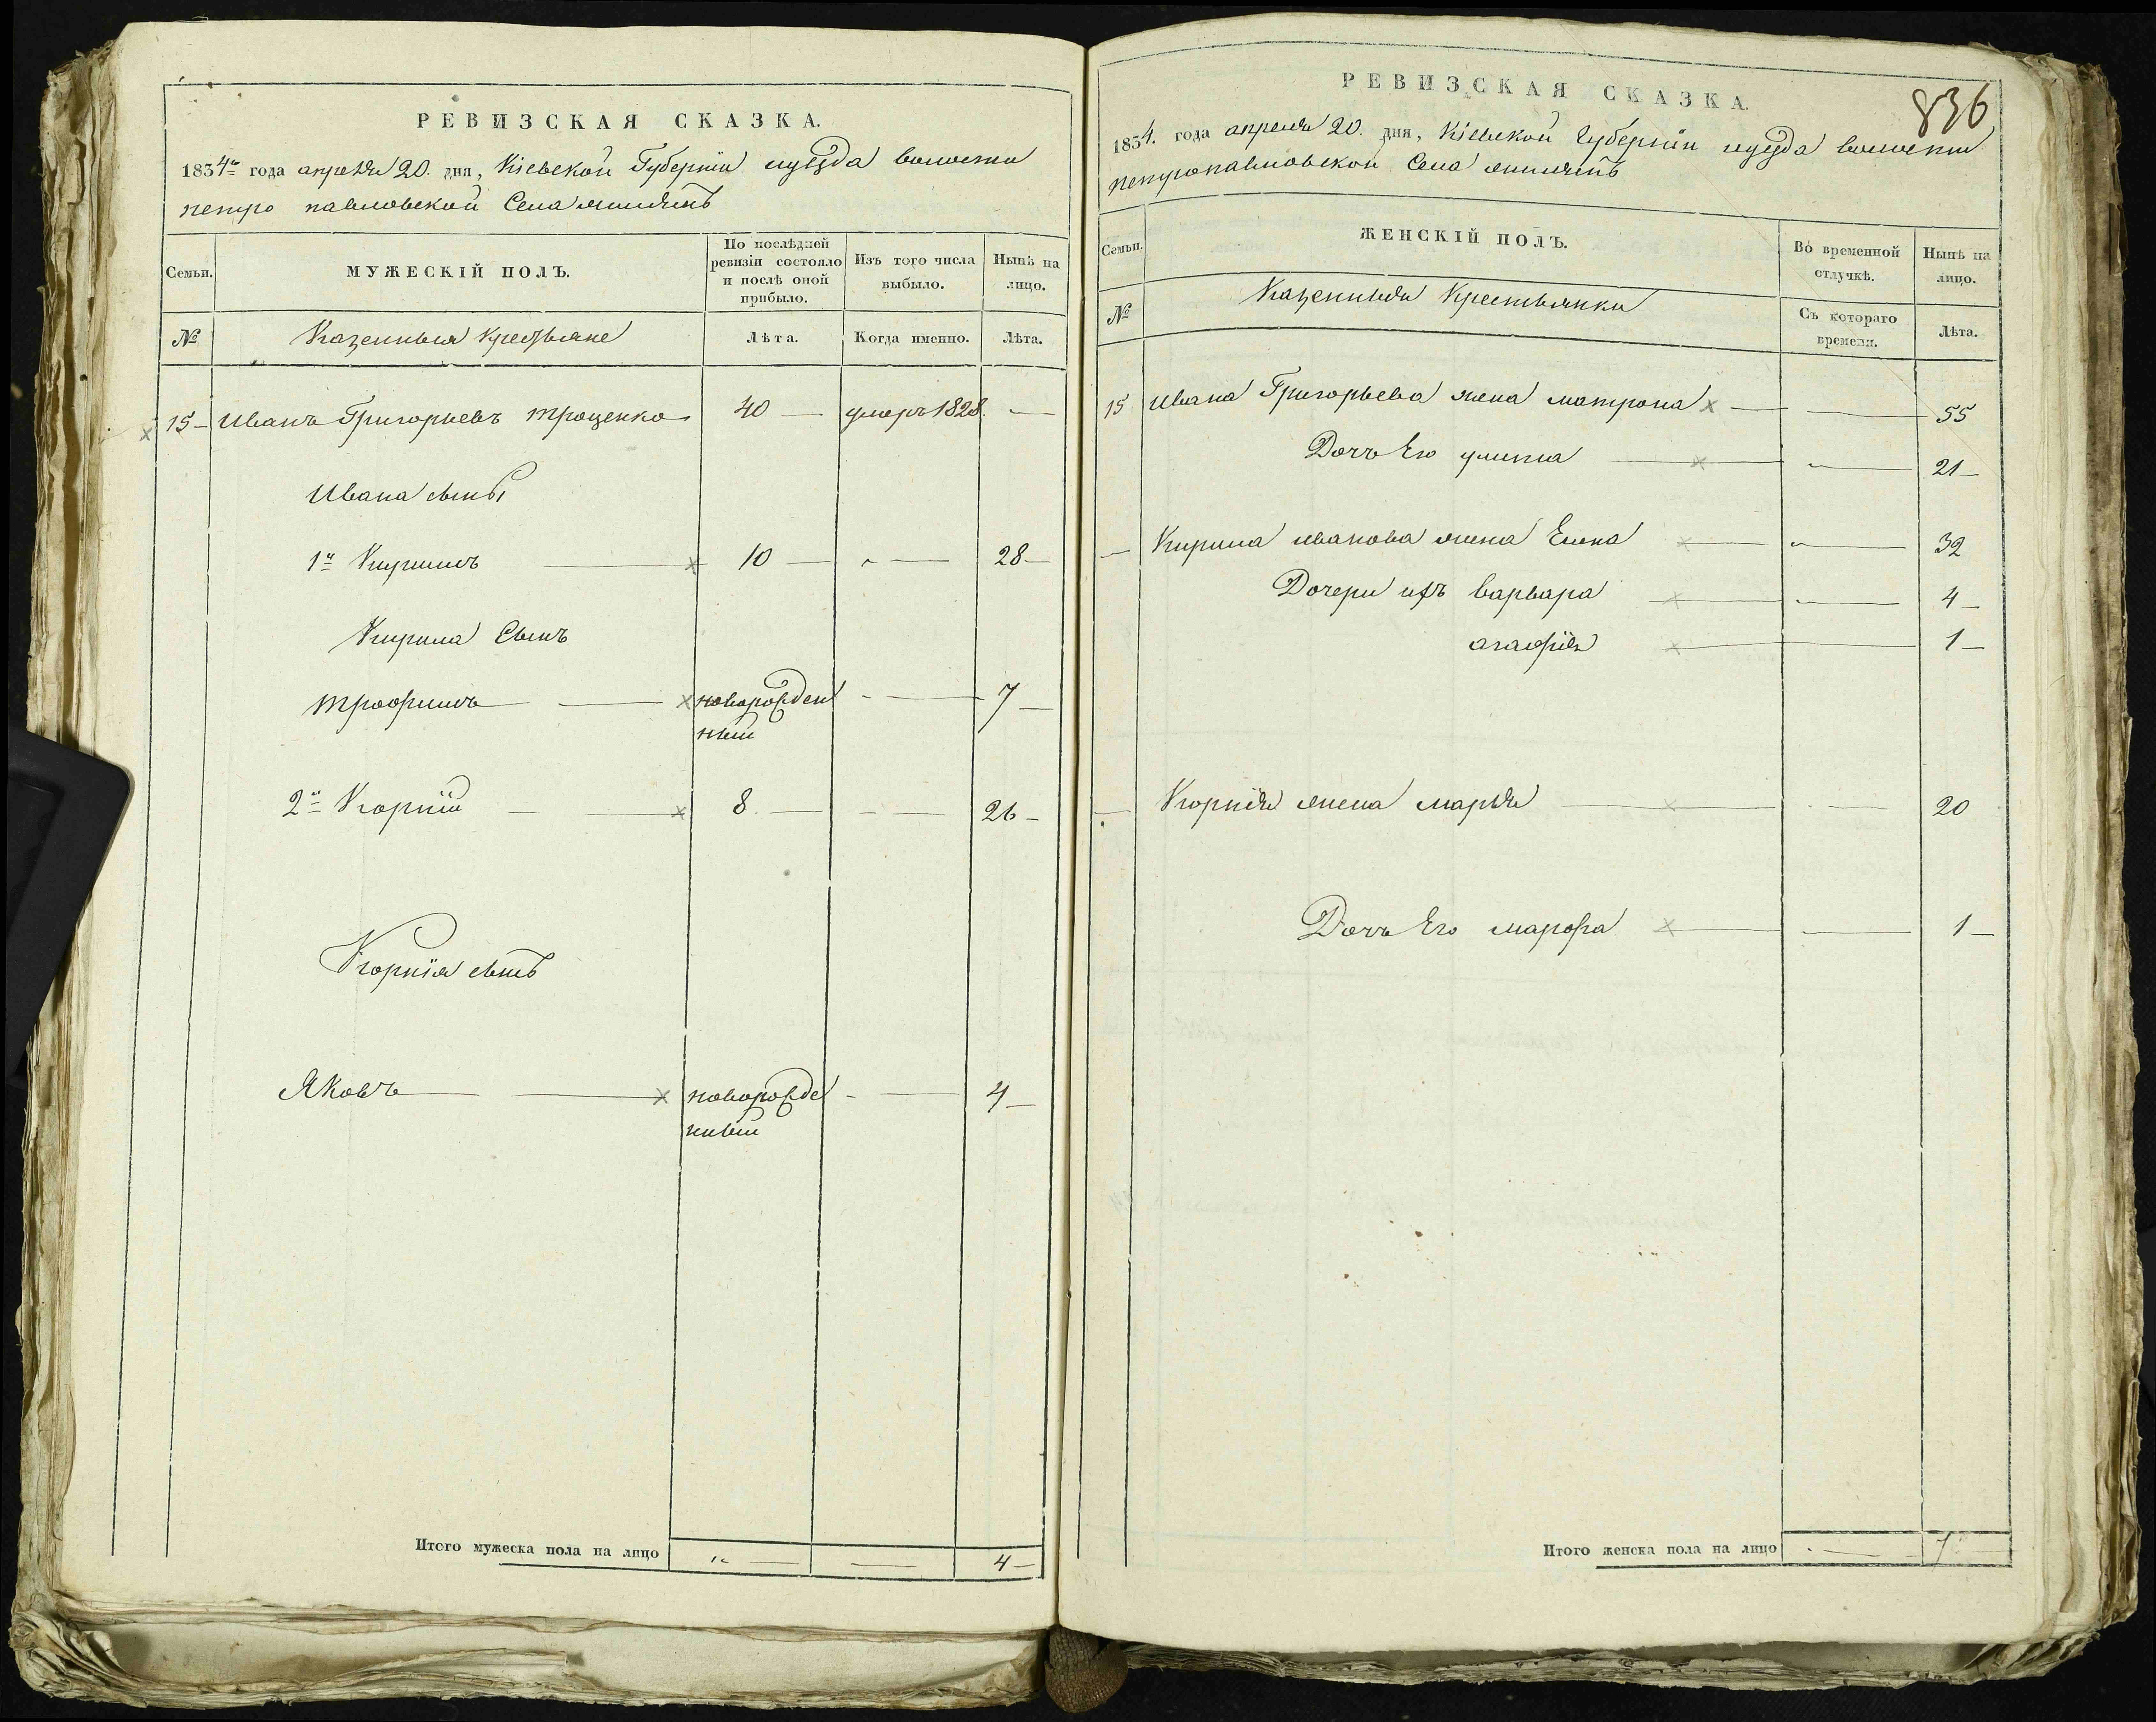 РЕВИЗСКАЯ СКАЗКА.
1834го года апреля 20. дня, Кіевской Губерніи и уезда волости
петро павловской Села
Семьи.
МУЖЕСКІЙ ПОЛЪ.
По послѣдней ревизіи состояло и послѣ оной прибыло.
Изъ того числа выбыло.
Нынѣ на лицо.
№
Казенныя Крестьяне
Лѣта.
Когда именно.
Лѣта.
15 Иванъ Григорьевъ Троценко 40 умеръ 1828
Ивана сыны
1й Кирилъ 10 28
Кирила Сынъ
трофимъ новорожден 7
ный
2й Корній 8. 26
Корнія сынъ
Яковъ новорожде 4
нный
Итого мужеска пола на лицо 4
836
РЕВИЗСКАЯ СКАЗКА.
1834. года апреля 20. дня, Кіевской Губерніи и уезда волости
петропавловской Села
Семьи.
ЖЕНСКІЙ ПОЛЪ.
Во временной отлучкѣ.
Нынѣ на лицо.
№
Казенныя Крестьянки
Съ котораго времени.
Лѣта.
15 Ивана Григорьева жена матрона 55
Дочь Его улита 21
Кирила иванова жена Елена 32
Дочери ихъ варвара 4
агафія 1
Корнія жена марья 20
Дочь Его марфа 1
Итого женска пола на лицо 7